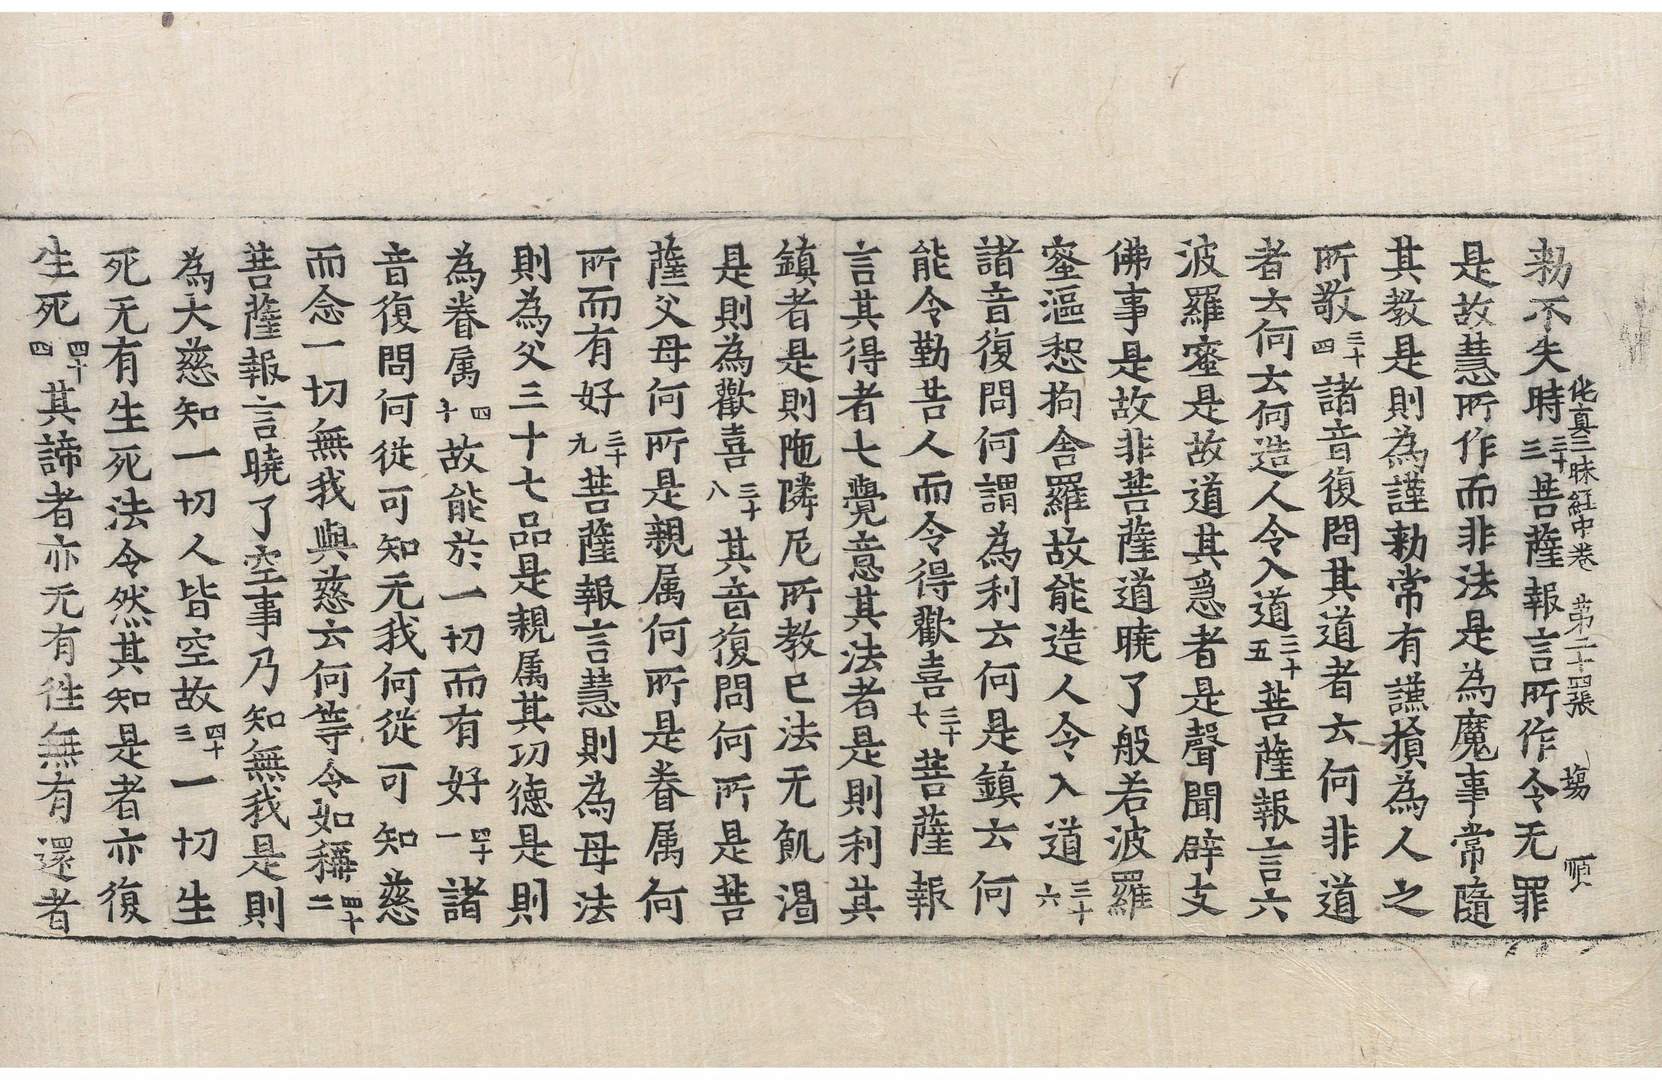 勑不失時三十三菩薩報言所作令无罪
伅真三昧経中卷 第二十四張 塲 順
是故慧所作而非法是為魔事常隨
其教是則為謹勑常有讌損為人之
所敬三十四諸音復問其道者云何非道
者云何云何造人令入道三十五菩薩報言六
波羅蜜是故道其爲者是聲聞辟支
佛事是故非菩薩道曉了般若波羅
蜜漚恕拘舍羅故能造人令入道三十六
諸音復問何謂為利云何是鎮云何
能令勤苦人而令得歡喜三十七菩薩報
言其得者七覺意其法者是則利其
鎮者是則陁隣尼所教巳法无飢渴
是則為歡喜三十八其音復問何所是菩
薩父母何所是親属何所是眷属何
所而有好三十九菩薩報言慧則為母法
則為父三十七品是親属其功德是則
為眷属四十故能於一切而有好四十一諸
音復問何從可知无我何從可知慈
而念一切無我與慈云何等令如稱四十二
菩薩報言曉了空事乃知無我是則
為大慈知一切人皆空故四十三一切生
死无有生死法令然其知是者亦復
生死四十四其諦者亦无有往無有還者